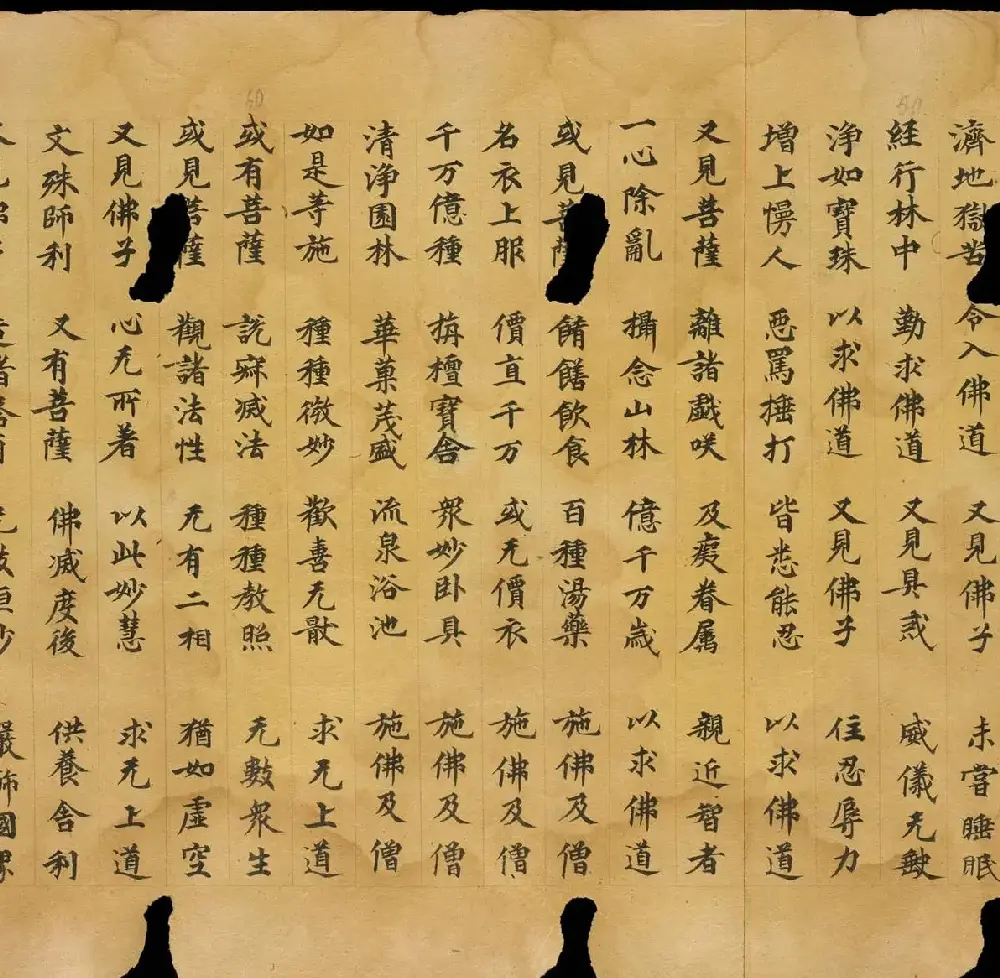 濟地獄苦 令入佛道 又見佛子 未嘗睡眠
經行林中 勤求佛道 又見具戒 威儀无缺
淨如寶珠 以求佛道 又見佛子 住忍辱力
增上慢人 惡罵捶打 皆悉能忍 以求佛道
又見菩薩 離諸戲咲 及癡眷屬 親近智者
一心除亂 攝念山林 億千万歲 以求佛道
或見菩薩 餚饍飲食 百種湯藥 施佛及僧
名衣上服 價直千万 或无價衣 施佛及僧
千万億種 栴檀寶舍 衆妙卧具 施佛及僧
清淨園林 華菓茂盛 流泉浴池 施佛及僧
如是等施 種種微妙 歡喜无猒 求无上道
或有菩薩 說寂滅法 種種教照 无數衆生
或見菩薩 觀諸法性 无有二相 猶如虛空
又見佛子 心无所著 以此妙慧 求无上道
文殊師利 又有菩薩 佛滅度後 供養舍利